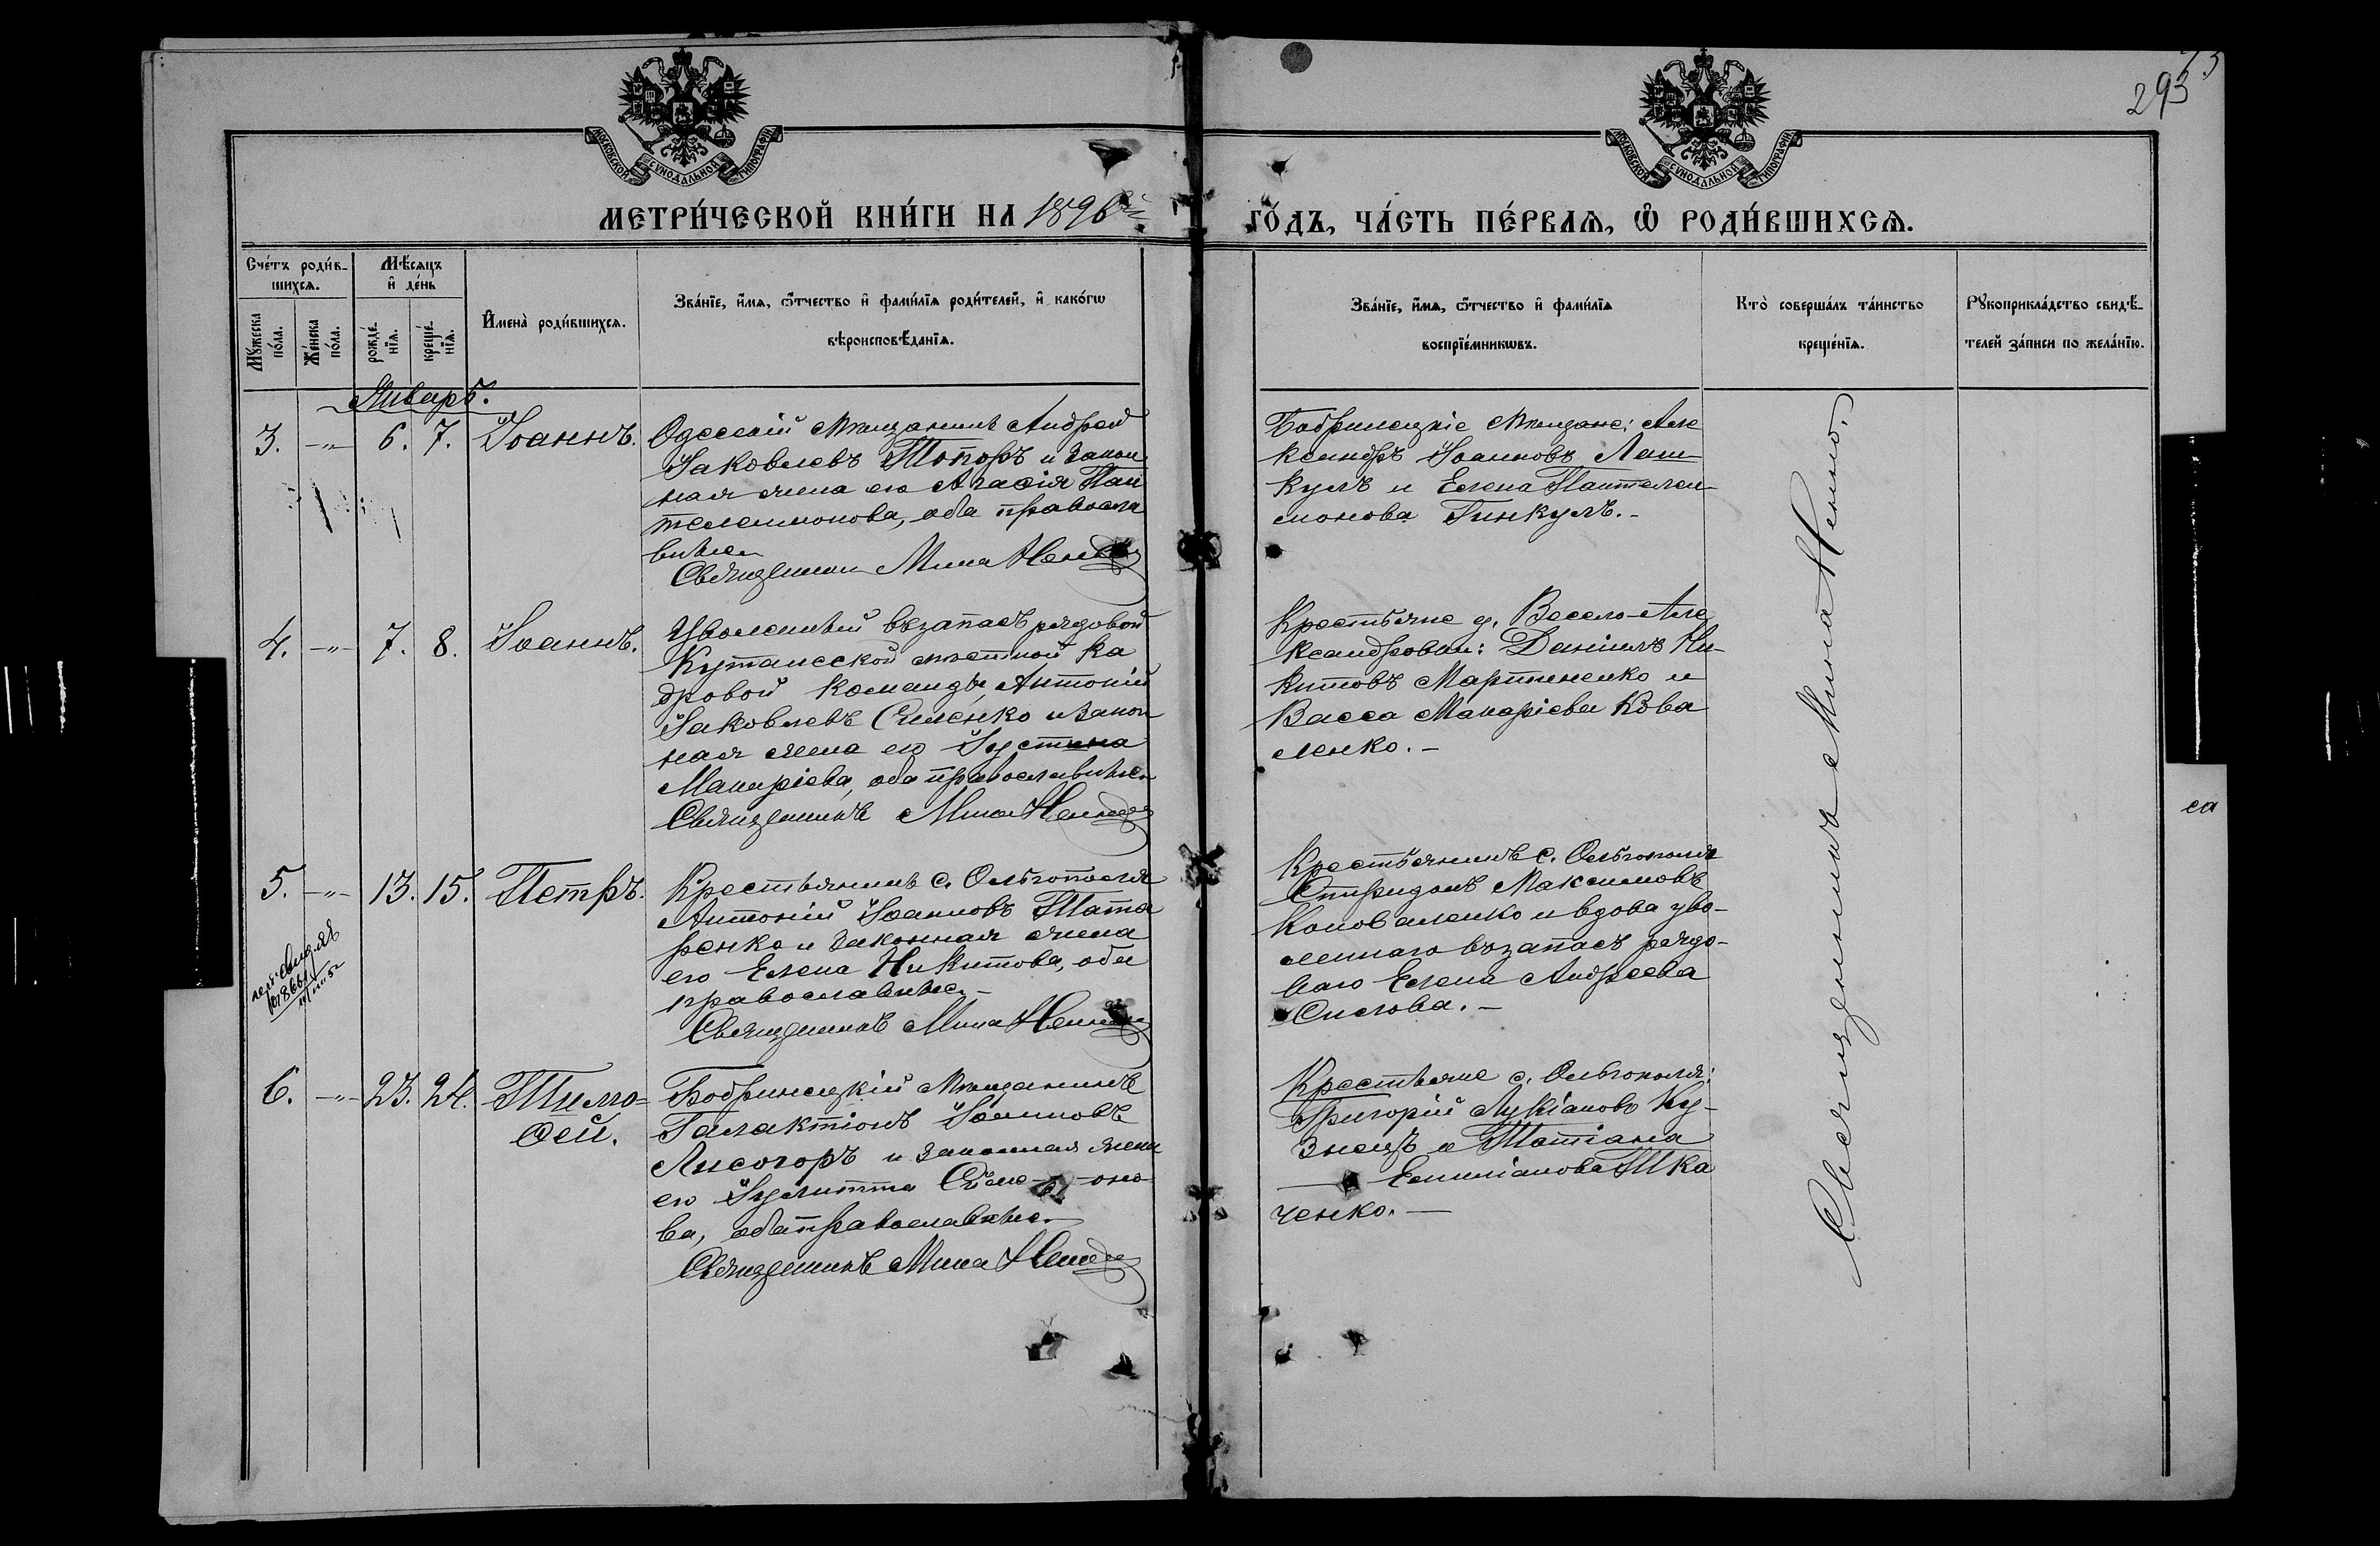 293
МОСКОВСКОЙ СѴНОДАЛЬНОЙ ТИПОГРАФІИ
МОСКОВСКОЙ СѴНОДАЛЬНОЙ ТИПОГРАФІИ
МЕТРИ́ЧЕСКОЙ КНИ́ГИ НА 1896й
ГО́ДЪ, ЧА́СТЬ ПЕ́РВАѦ, Ѡ҆ РОДИ́ВШИХСѦ.
Сче́тъ роди́в-
шихсѧ.
Мꙋ́жеска по́ла.
Же́нска по́ла.
Мѣ́сѧцъ и҆ де́нь
рожде́-нїѧ.
креще́-нїѧ.
И҆мена̀ роди́вшихсѧ.
Зва́нїе, и҆́мѧ, ѻ҆́тчество и҆ фами́лїѧ роди́телей, и҆ како́гѡ
вѣроисповѣ́данїѧ.
Зва́нїе, и҆́мѧ, ѻ҆́тчество и҆ фами́лїѧ
воспрїе́мникѡвъ.
Кто̀ соверша́лъ та́инство
креще́нїѧ.
Рꙋкоприкла́дство свидѣ́-
телей за́писи по жела́нїю.
Январь.
3. -„- 6. 7. Іоаннъ.
Одесскій мѣщанинъ Андрей
Іаковлевъ Топоръ и закон
ная жена его Агаѳія Пан
телеимонова, оба правосла
вные
Священникъ Мина
Бобринецкіе мѣщане: Але
ксандръ Іоанновъ Лаш
кулъ и Елена Пантелеи
монова Гинкулъ.-
4. -„- 7. 8. Іоаннъ.
Уволенный въ запасъ рядовой
Кутаисской мѣстной ка
дровой команды Антоній
Іаковлевъ и закон
ная жена его Іустина
Макаріева, оба православные
Священникъ Мина
Крестьяне д. Весело-Але
ксандровки: Даніилъ Ни-
китовъ Мартиненко и
Васса Макаріева Кова
ленко.-
5. -„- 13. 15. Петръ.
Крестьянинъ с. Ольгополя
Антоній Іоанновъ Тата
ренко и законная жена
его Елена Никитова, оба
православные.-
Священникъ Мина
№ 8661
Крестьянинъ с. Ольгополя
Спиридонъ Максимовъ
Коноваленко и вдова уво-
леннаго въ запасъ рядо-
ваго Елена Андреева
6. -„- 23. 24. Тимо=
ѳей.
Бобринецкій мѣщанинъ
Галактіонъ Іоанновъ
Лисогоръ и законная жена
его Іулитта
ва, оба православные.-
Священникъ Мина
Крестьяне с. Ольгополя:
Григорій Лукіановъ Ку-
знецъ и Татіана
Емиліанова Тка
ченко.-
Священникъ Мина
са